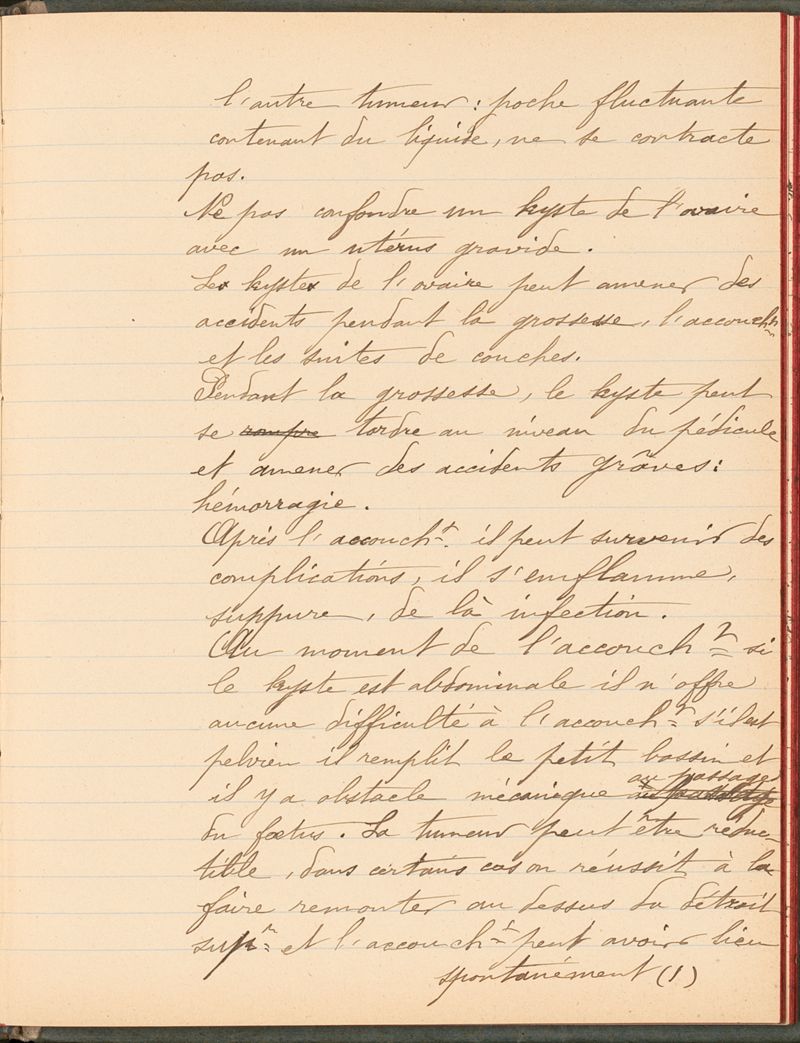 l'autre tumeur : poche fluctuante
contenant du liquide, ne se contracte
pas.
Ne pas confondre un kyste de l'ovaire
avec un utérus gravide.
Les kystes de l'ovaire peut amener des
accidents pendant la grossesse, l'accoucht
et les suites de couches.
Pendant la grossesse, le kyste peut
se rompre tordre au niveau du pédicule
et amener des accidents grâves :
hémorragie.
Après l'accoucht. il peut survenir des
complications, il s'emflamme,
suppure, de là infection.
Au moment de l'accoucht si
le kyste est abdominale il n'offre
aucune difficulté à l'accoucht s'il est
pelvien il remplit le petit bassin et
il y a obstacle mécanique au passage
du fœtus. La tumeur peut être réduc-
tible, dans certains cas on réussit à la
faire remonter au dessus du détroit
supr et l'accoucht peut avoir lieu
spontanément (1)